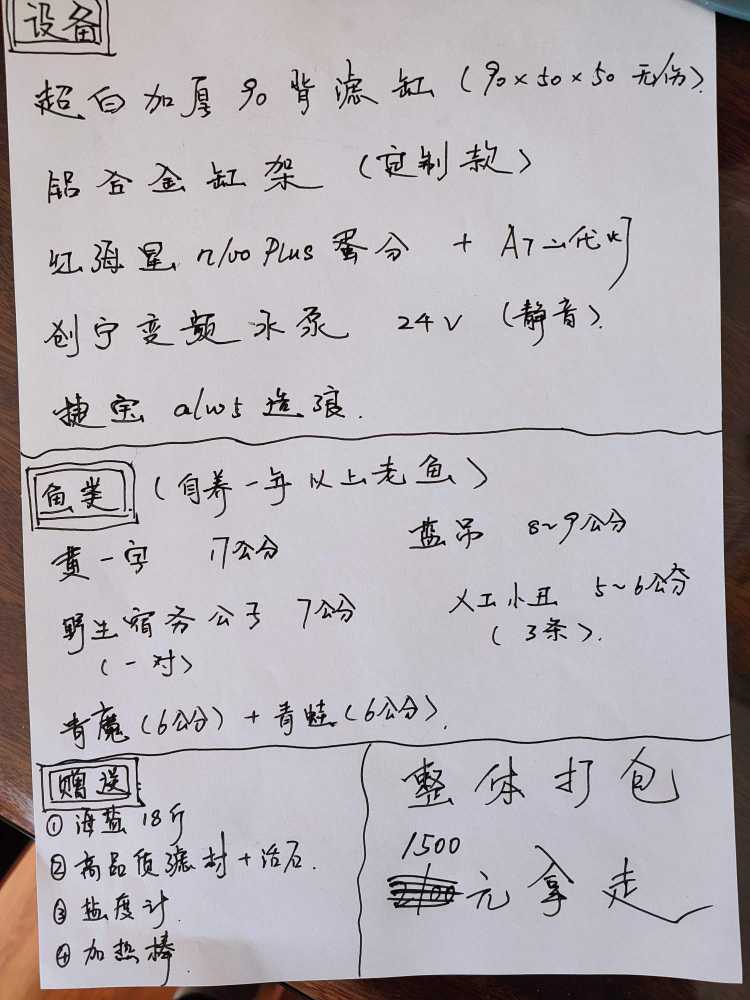 设备
超白加厚90背滤缸(90×50×50无伤).
铝合金缸架(定制款)
红海星n100Plus蛋分+A7二代灯
创宁变频水泵 24V(静音).
捷宝alw5造浪.
鱼类(自养一年以上老鱼)
黄一字 17公分 蓝吊 8~9公分
野生宿务公子 7公分 人工小丑 5~6公分
(一对) (3条).
青魔(6公分)+青蛙(6公分).
赠送:
①海盐18斤
②高品质滤材+活石.
③盐度计.
④加热棒.
整体打包
1500
元拿走